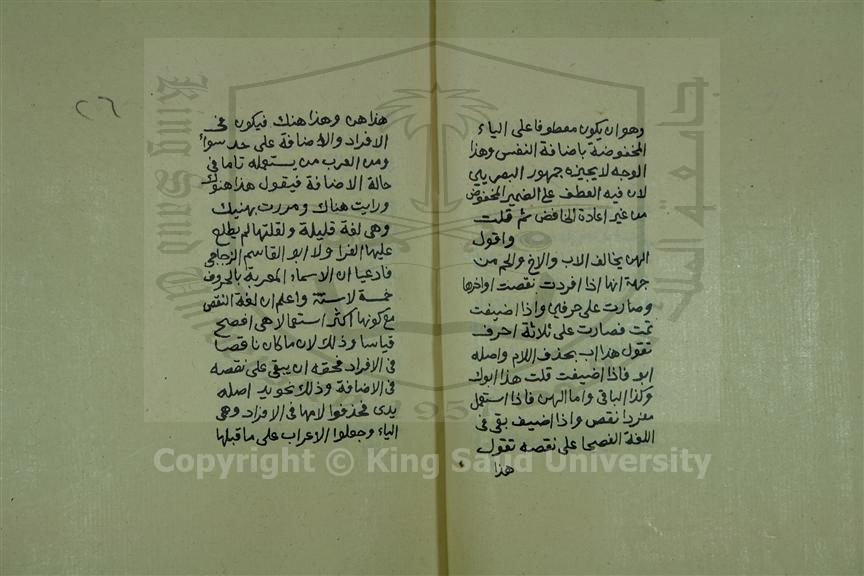 وهو ان يكون معطوفا على الياء
المخفوضة باضافة النفس وهذا
الوجه لا يجيزه جمهور البصريين
لان فيه العطف على الضمير المخفوض
من غير اعادة الخافض ثم قلت
واقول
الهن يخالف الاب والاخ والحم من
جهة انها اذا افردت نقصت اواخرها
وصارت على حرفي واذا اضيفت
تمت فصارت على ثلاثة احرف
تقول هذا اب بحذف اللام واصله
ابو فاذا اضيفت قلت هذا ابوك
وكذا الباقي واما الهن فاذا استعمل
مفردا نقص واذا اضيف بقى فى
اللغة الفصحا على نقصه تقول
هذا
٢٦
هذا هن وهذا هنك فيكون فى
الافراد والاضافة على حد سواء
ومن العرب من يستعمله تاما فى
حالة الاضافة فيقول هذا هنوك
ورايت هناك ومررت بهنيك
وهى لغة قليلة ولقلتها لم يطلع
عليها الفرا ولا ابو القاسم الزجاجى
فادعيا ان الاسماء المعربة بالحروف
خمسة لاستة واعلم ان لغة النقص
مع كونها اكثر استعمالا هى افصح
قياسا وذلك لان ما كان ناقصا
فى الافراد فحقه ان يبقى على نقصه
فى الاضافة وذلك نحو يد اصله
يدى فحذفوا لامها فى الافراد وهى
الياء وجعلوا الاعراب على ما قبلها
King Saud University
جامعة الملك سعود
1957
Copyright © King Saud University